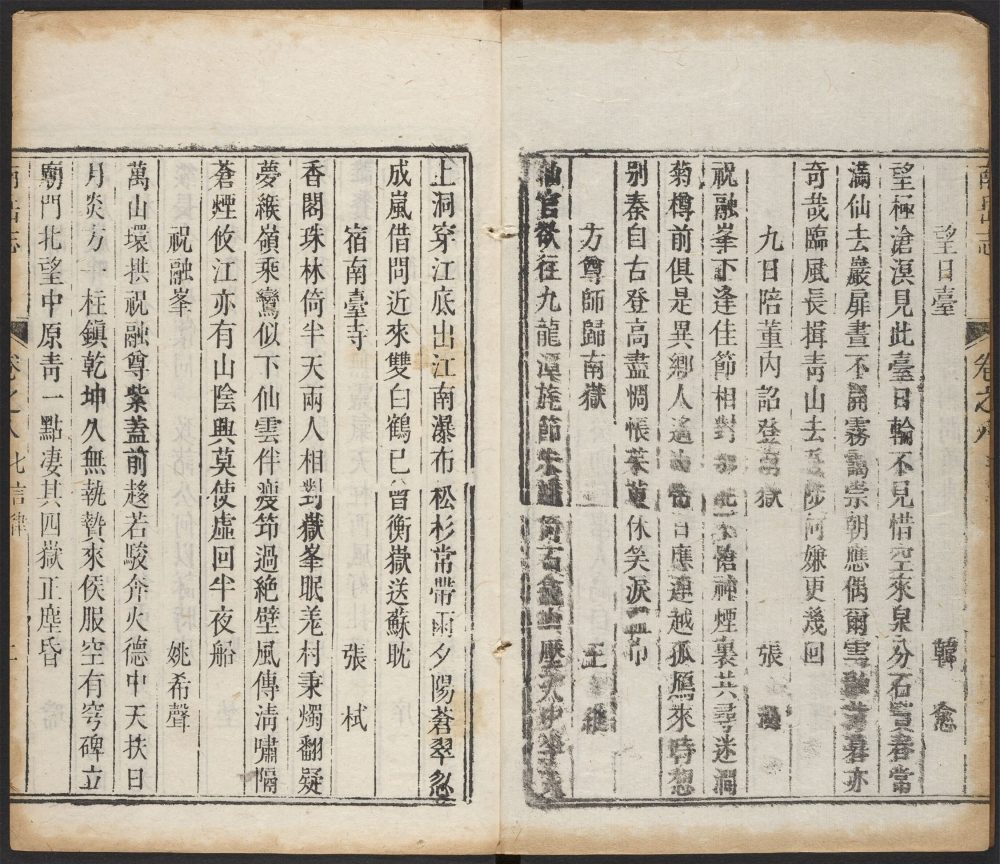 望日臺
韓愈
望極滄溟見此臺日輪不見惜空來泉分石竇春常
滿仙去巖扉晝不開霧靄崇朝應偶爾雪
亦
奇哉臨風長揖靑山去何嫌更幾回
九日陪董内詔登高嶽
張
祝融峯下逢佳節相對
煙裏共尋迷澗
菊樽前俱是異鄉人遙
應連越孤鴈來時想
别秦自古登高盡惆悵茱萸休笑淚盈巾
方尊師歸南嶽
王維
仙官欲往九龍潭旄節朱旛倚石龕
上洞穿江底出江南瀑布松杉常帶雨夕陽蒼翠忽
成嵐借問近來雙白鶴已曾衡嶽送蘇耽
宿南臺寺
張栻
香閣珠林倚半天兩人相對嶽峯眠羌村秉燭翻疑
夢緱嶺乘鸞似下仙雲伴瘦筇過絶壁風傳淸嘯隔
蒼煙攸江亦有山陰興莫使虛回半夜船
祝融峯
姚希聲
萬山環拱祝融尊紫蓋前趍若駿奔火德中天扶日
月炎方一柱鎭乾坤久無執贄來侯服空有穹碑立
廟門北望中原靑一點凄其四嶽正塵昏
卷之八 七言律